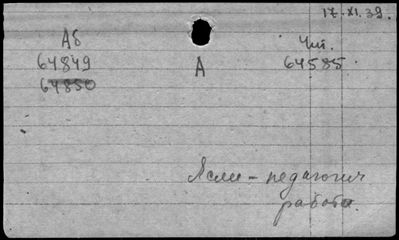 17-XI.39.
Аб Чит.
64849 А 64585
64850
Ясли - педагогич
работа.